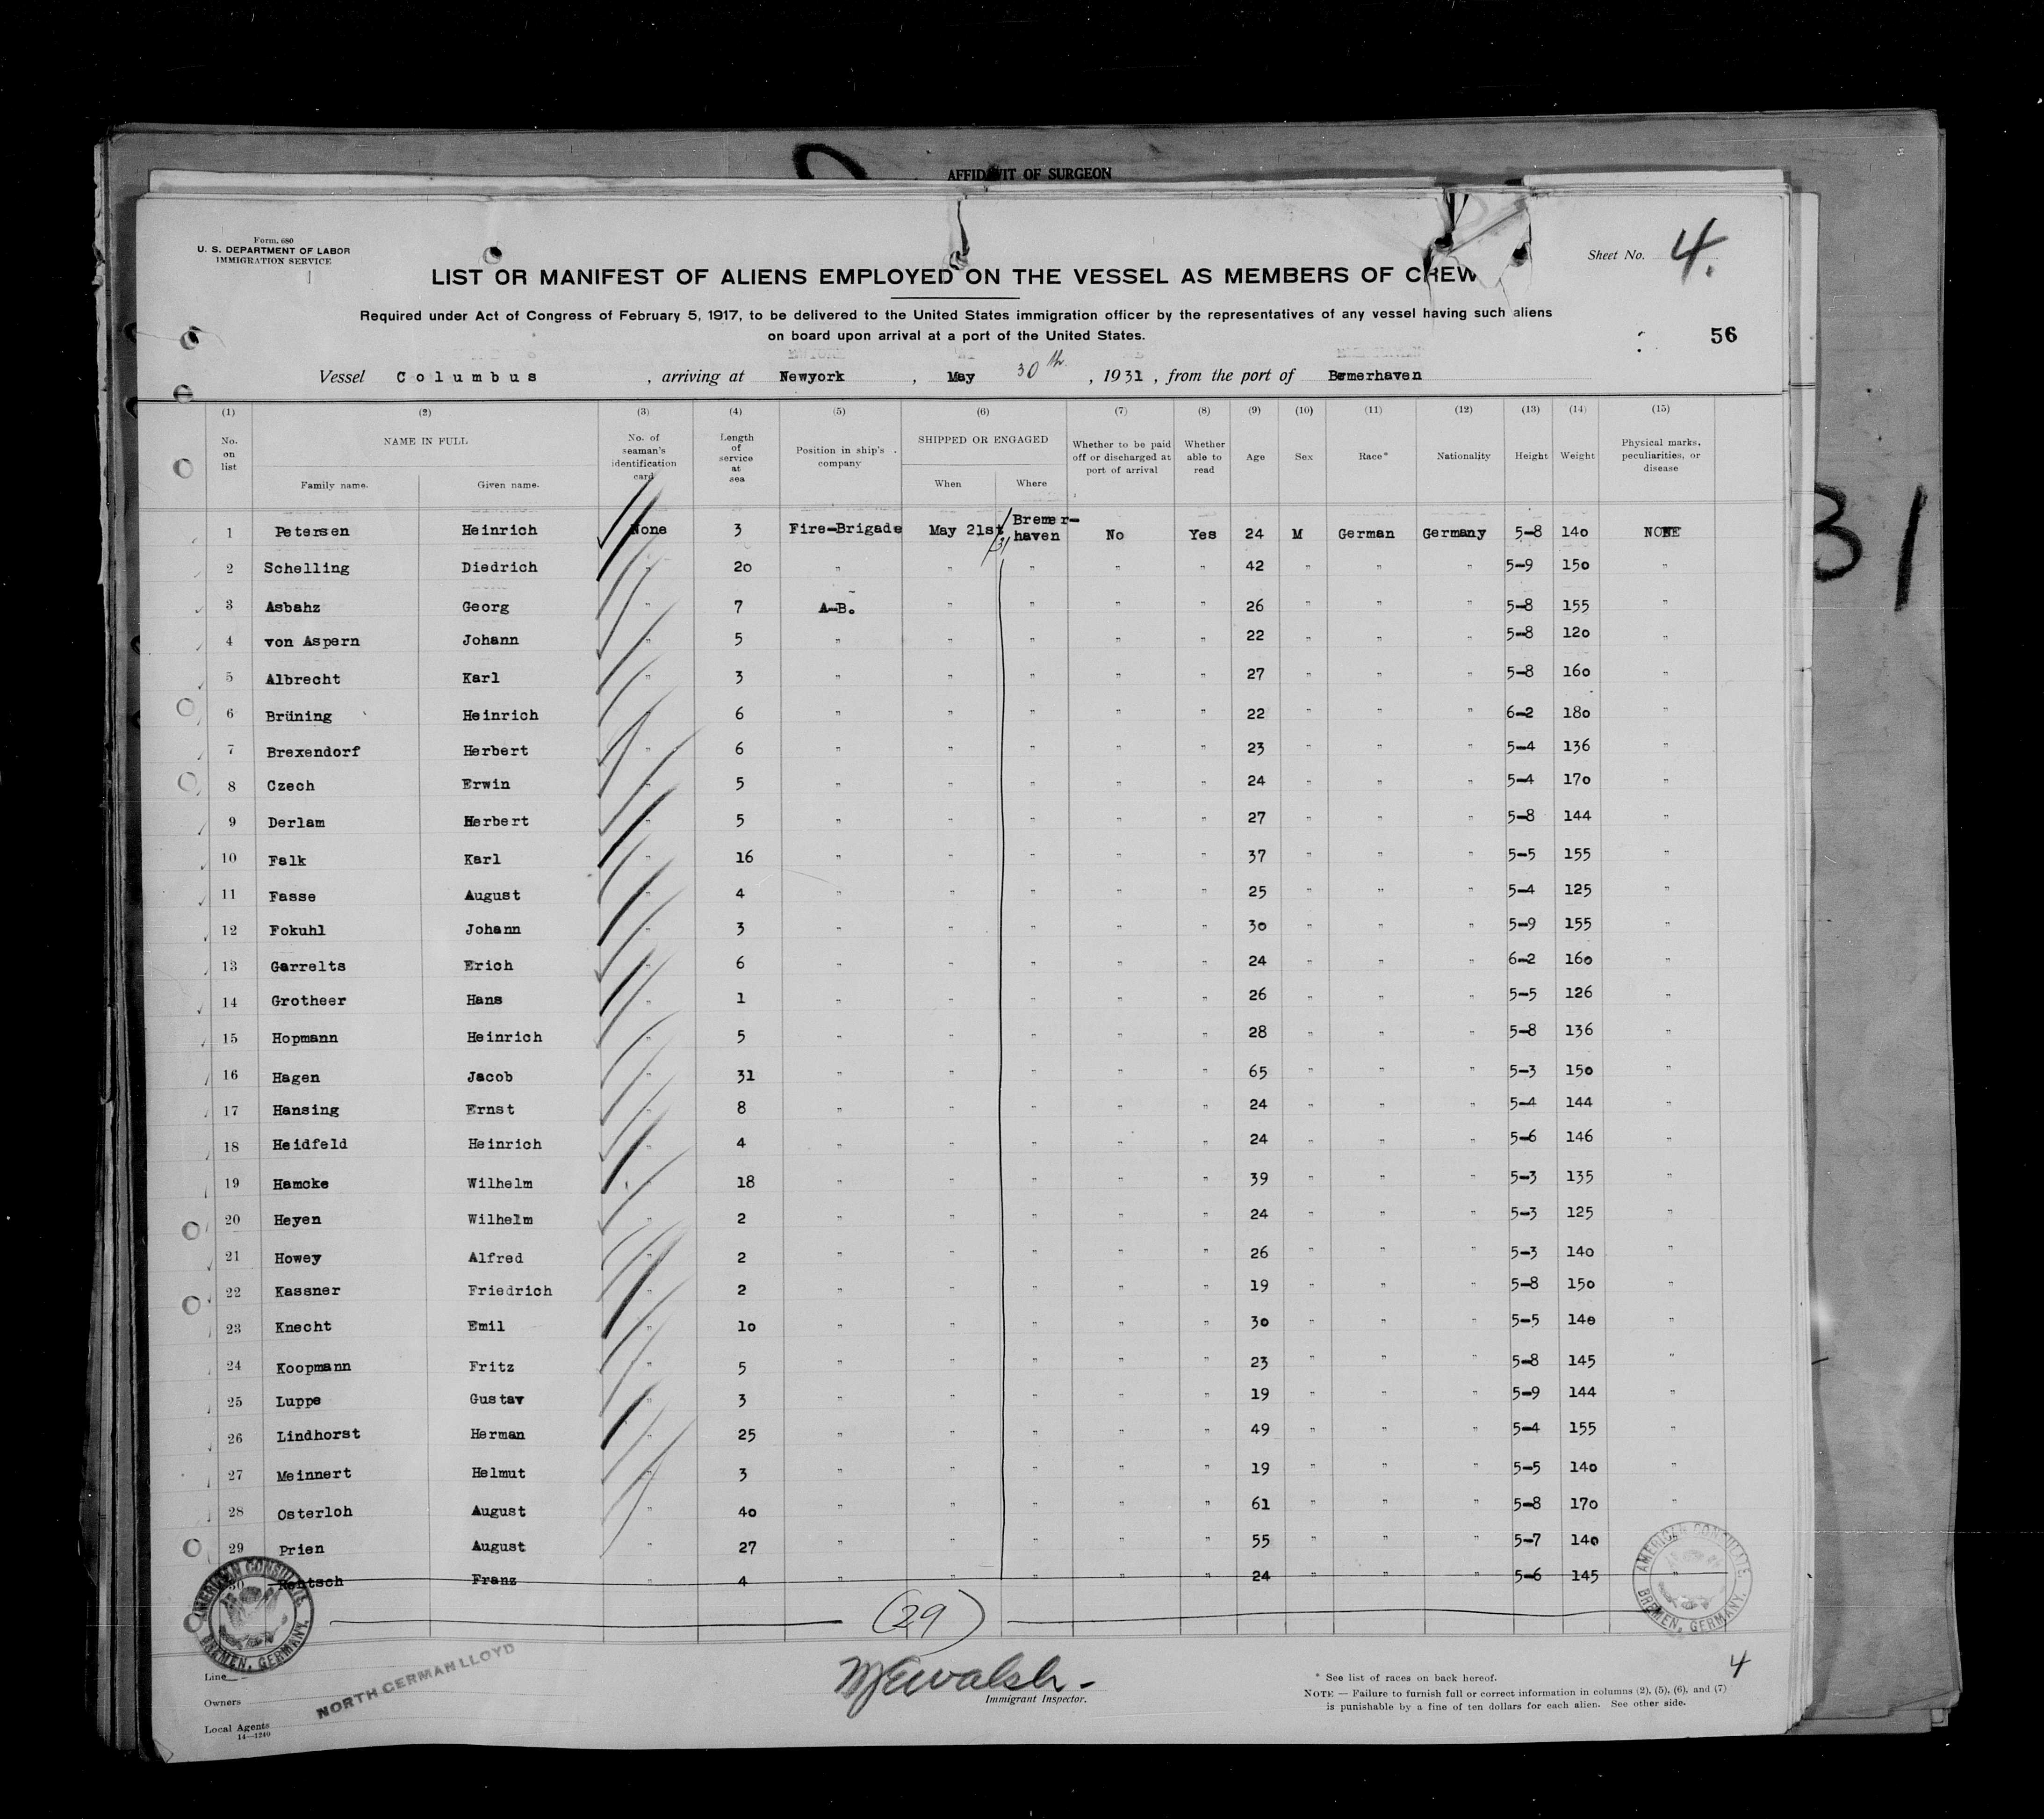 AFFIDAVIT OF SURGEON
Form. 680
U. S. DEPARTMENT OF LABOR
IMMIGRATION SERVICE
Sheet No. 4.
LIST OR MANIFEST OF ALIENS EMPLOYED ON THE VESSEL AS MEMBERS OF CREW
Required under Act of Congress of February 5, 1917, to be delivered to the United States immigration officer by the representatives of any vessel having such aliens
on board upon arrival at a port of the United States.
56
Vessel Columbus , arriving at Newyork , May 30th. , 1931 , from the port of Bremerhaven
(1) (2) (3) (4) (5) (6) (7) (8) (9) (10) (11) (12) (13) (14) (15)
No. on list NAME IN FULL Family name. Given name. No. of seaman's identification card Length of service at sea Position in ship's company SHIPPED OR ENGAGED When Where Whether to be paid off or discharged at port of arrival Whether able to read Age Sex Race* Nationality Height Weight Physical marks, peculiarities, or disease
1 Petersen Heinrich None 3 Fire-Brigade May 21st/31 Bremer-haven No Yes 24 M German Germany 5-8 140 NONE
2 Schelling Diedrich " 20 " " " " " 42 " " " 5-9 150 "
3 Asbahz Georg " 7 A-B. " " " " 26 " " " 5-8 155 "
4 von Aspern Johann " 5 " " " " " 22 " " " 5-8 120 "
5 Albrecht Karl " 3 " " " " " 27 " " " 5-8 160 "
6 Brüning Heinrich " 6 " " " " " 22 " " " 6-2 180 "
7 Brexendorf Herbert " 6 " " " " " 23 " " " 5-4 136 "
8 Czech Erwin " 5 " " " " " 24 " " " 5-4 170 "
9 Derlam Herbert " 5 " " " " " 27 " " " 5-8 144 "
10 Falk Karl " 16 " " " " " 37 " " " 5-5 155 "
11 Fasse August " 4 " " " " " 25 " " " 5-4 125 "
12 Fokuhl Johann " 3 " " " " " 30 " " " 5-9 155 "
13 Garrelts Erich " 6 " " " " " 24 " " " 6-2 160 "
14 Grotheer Hans " 1 " " " " " 26 " " " 5-5 126 "
15 Hopmann Heinrich " 5 " " " " " 28 " " " 5-8 136 "
16 Hagen Jacob " 31 " " " " " 65 " " " 5-3 150 "
17 Hansing Ernst " 8 " " " " " 24 " " " 5-4 144 "
18 Heidfeld Heinrich " 4 " " " " " 24 " " " 5-6 146 "
19 Hamcke Wilhelm " 18 " " " " " 39 " " " 5-3 135 "
20 Heyen Wilhelm " 2 " " " " " 24 " " " 5-3 125 "
21 Howey Alfred " 2 " " " " " 26 " " " 5-3 140 "
22 Kassner Friedrich " 2 " " " " " 19 " " " 5-8 150 "
23 Knecht Emil " 10 " " " " " 30 " " " 5-5 140 "
24 Koopmann Fritz " 5 " " " " " 23 " " " 5-8 145 "
25 Luppe Gustav " 3 " " " " " 19 " " " 5-9 144 "
26 Lindhorst Herman " 25 " " " " " 49 " " " 5-4 155 "
27 Meinnert Helmut " 3 " " " " " 19 " " " 5-5 140 "
28 Osterloh August " 40 " " " " " 61 " " " 5-8 170 "
29 Prien August " 27 " " " " " 55 " " " 5-7 140 "
30 Rentsch Franz " 4 " " " " " 24 " " " 5-6 145 "
(29)
AMERICAN CONSULATE. BREMEN, GERMANY.
AMERICAN CONSULATE. BREMEN, GERMANY.
Line
Owners
Local Agents
14—1240
NORTH GERMAN LLOYD
Walsh
Immigrant Inspector.
* See list of races on back hereof.
NOTE — Failure to furnish full or correct information in columns (2), (5), (6), and (7)
is punishable by a fine of ten dollars for each alien. See other side.
4
31